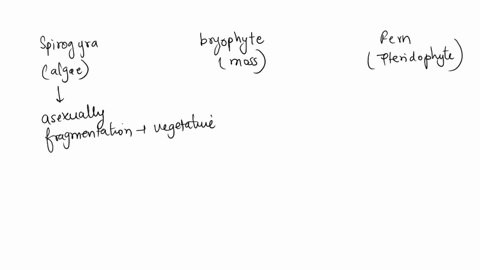 Spirogyra
(algae)
↓
asexually
fragmentation → vegetative
bryophyte
(moss)
Fern
(Pteridophyte)